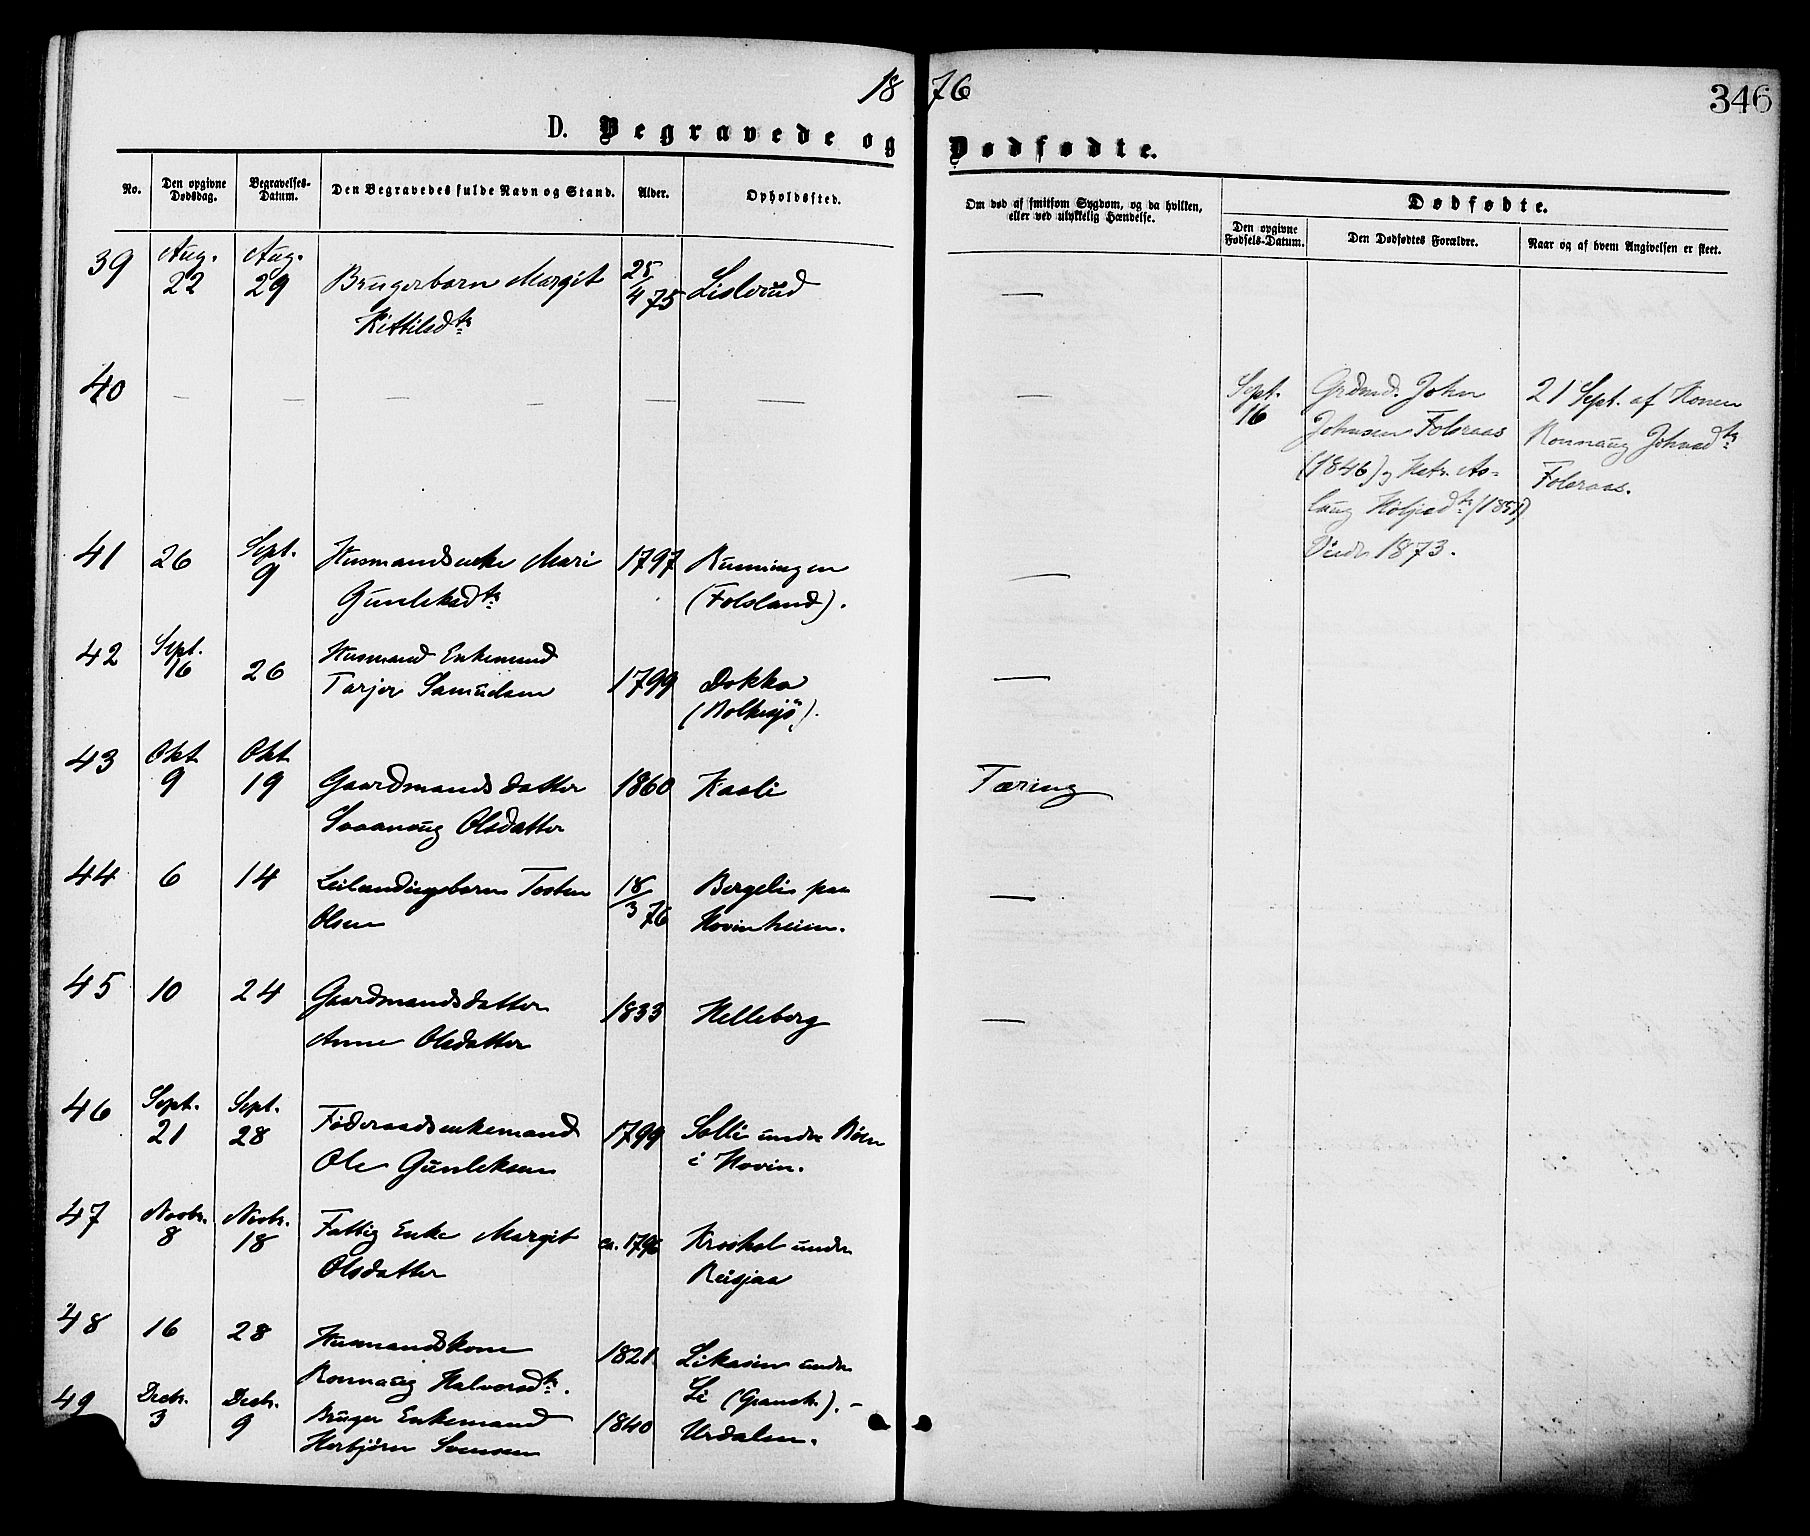 1876
346
D. Begravede og Dødfødte.
No.
Den opgivne Dødsdag.
Begravelses-Datum.
Den Begravedes fulde Navn og Stand.
Alder.
Opholdssted.
Om død af smitsom Sygdom, og da hvilken, eller ved ulykkelig Hændelse.
Dødfødte.
Den opgivne Fødsels-Datum.
Den Dødfødtes Forældre.
Naar og af hvem Angivelsen er skeet.
39 Aug. 22 Aug. 29 Brugerbarn Margit 25/4 75 Lislerud —
Kittilsdtr
40 — — — — — — —
Sept. 16 Grdmd. John 21 Sept. af Konen
Johnsen Folseraas Ronnaug Johnsdtr
(1846) og Hstr. As- Folseraas.
laug Høljesdtr (1851)
Viede 1873.
41 26 Sept. 9 Husmandsenke Mari 1797 Runningen —
Gunleksdtr (Folsland).
42 Sept. 16 26 Husmand Enkemand
Tarjer Samuelsen 1799 Dokka —
(Bolkesjö).
43 Okt 9 Okt 19 Gaardmandsdatter 1860 Kaali Tæring
Svaanaug Olsdatter
44 6 14 Leilændingsbarn Tosten 18/3 76 Bergeli paa —
Olsen Hovinheiem.
45 10 24 Gaardmandsdatter 1833 Helleberg —
Anne Olsdatter
46 Sept. 21 Sept. 28 Føderaadsenkemand 1799 Solli under Bøen
Ole Gunleksen i Hovin.
47 Novbr. 8 Novbr. 18 Fattig Enke Margit ca. 1796 Kroshol under
Olsdatter Reisjaa
48 16 28 Husmandskone 1821 Likaasen under
Ronnaug Halvorsdtr. Li (Gransh.). —
49 Decbr. 3 Decbr. 9 Bruger Enkemand 1840 Urdalen.
Herbjörn Svensen